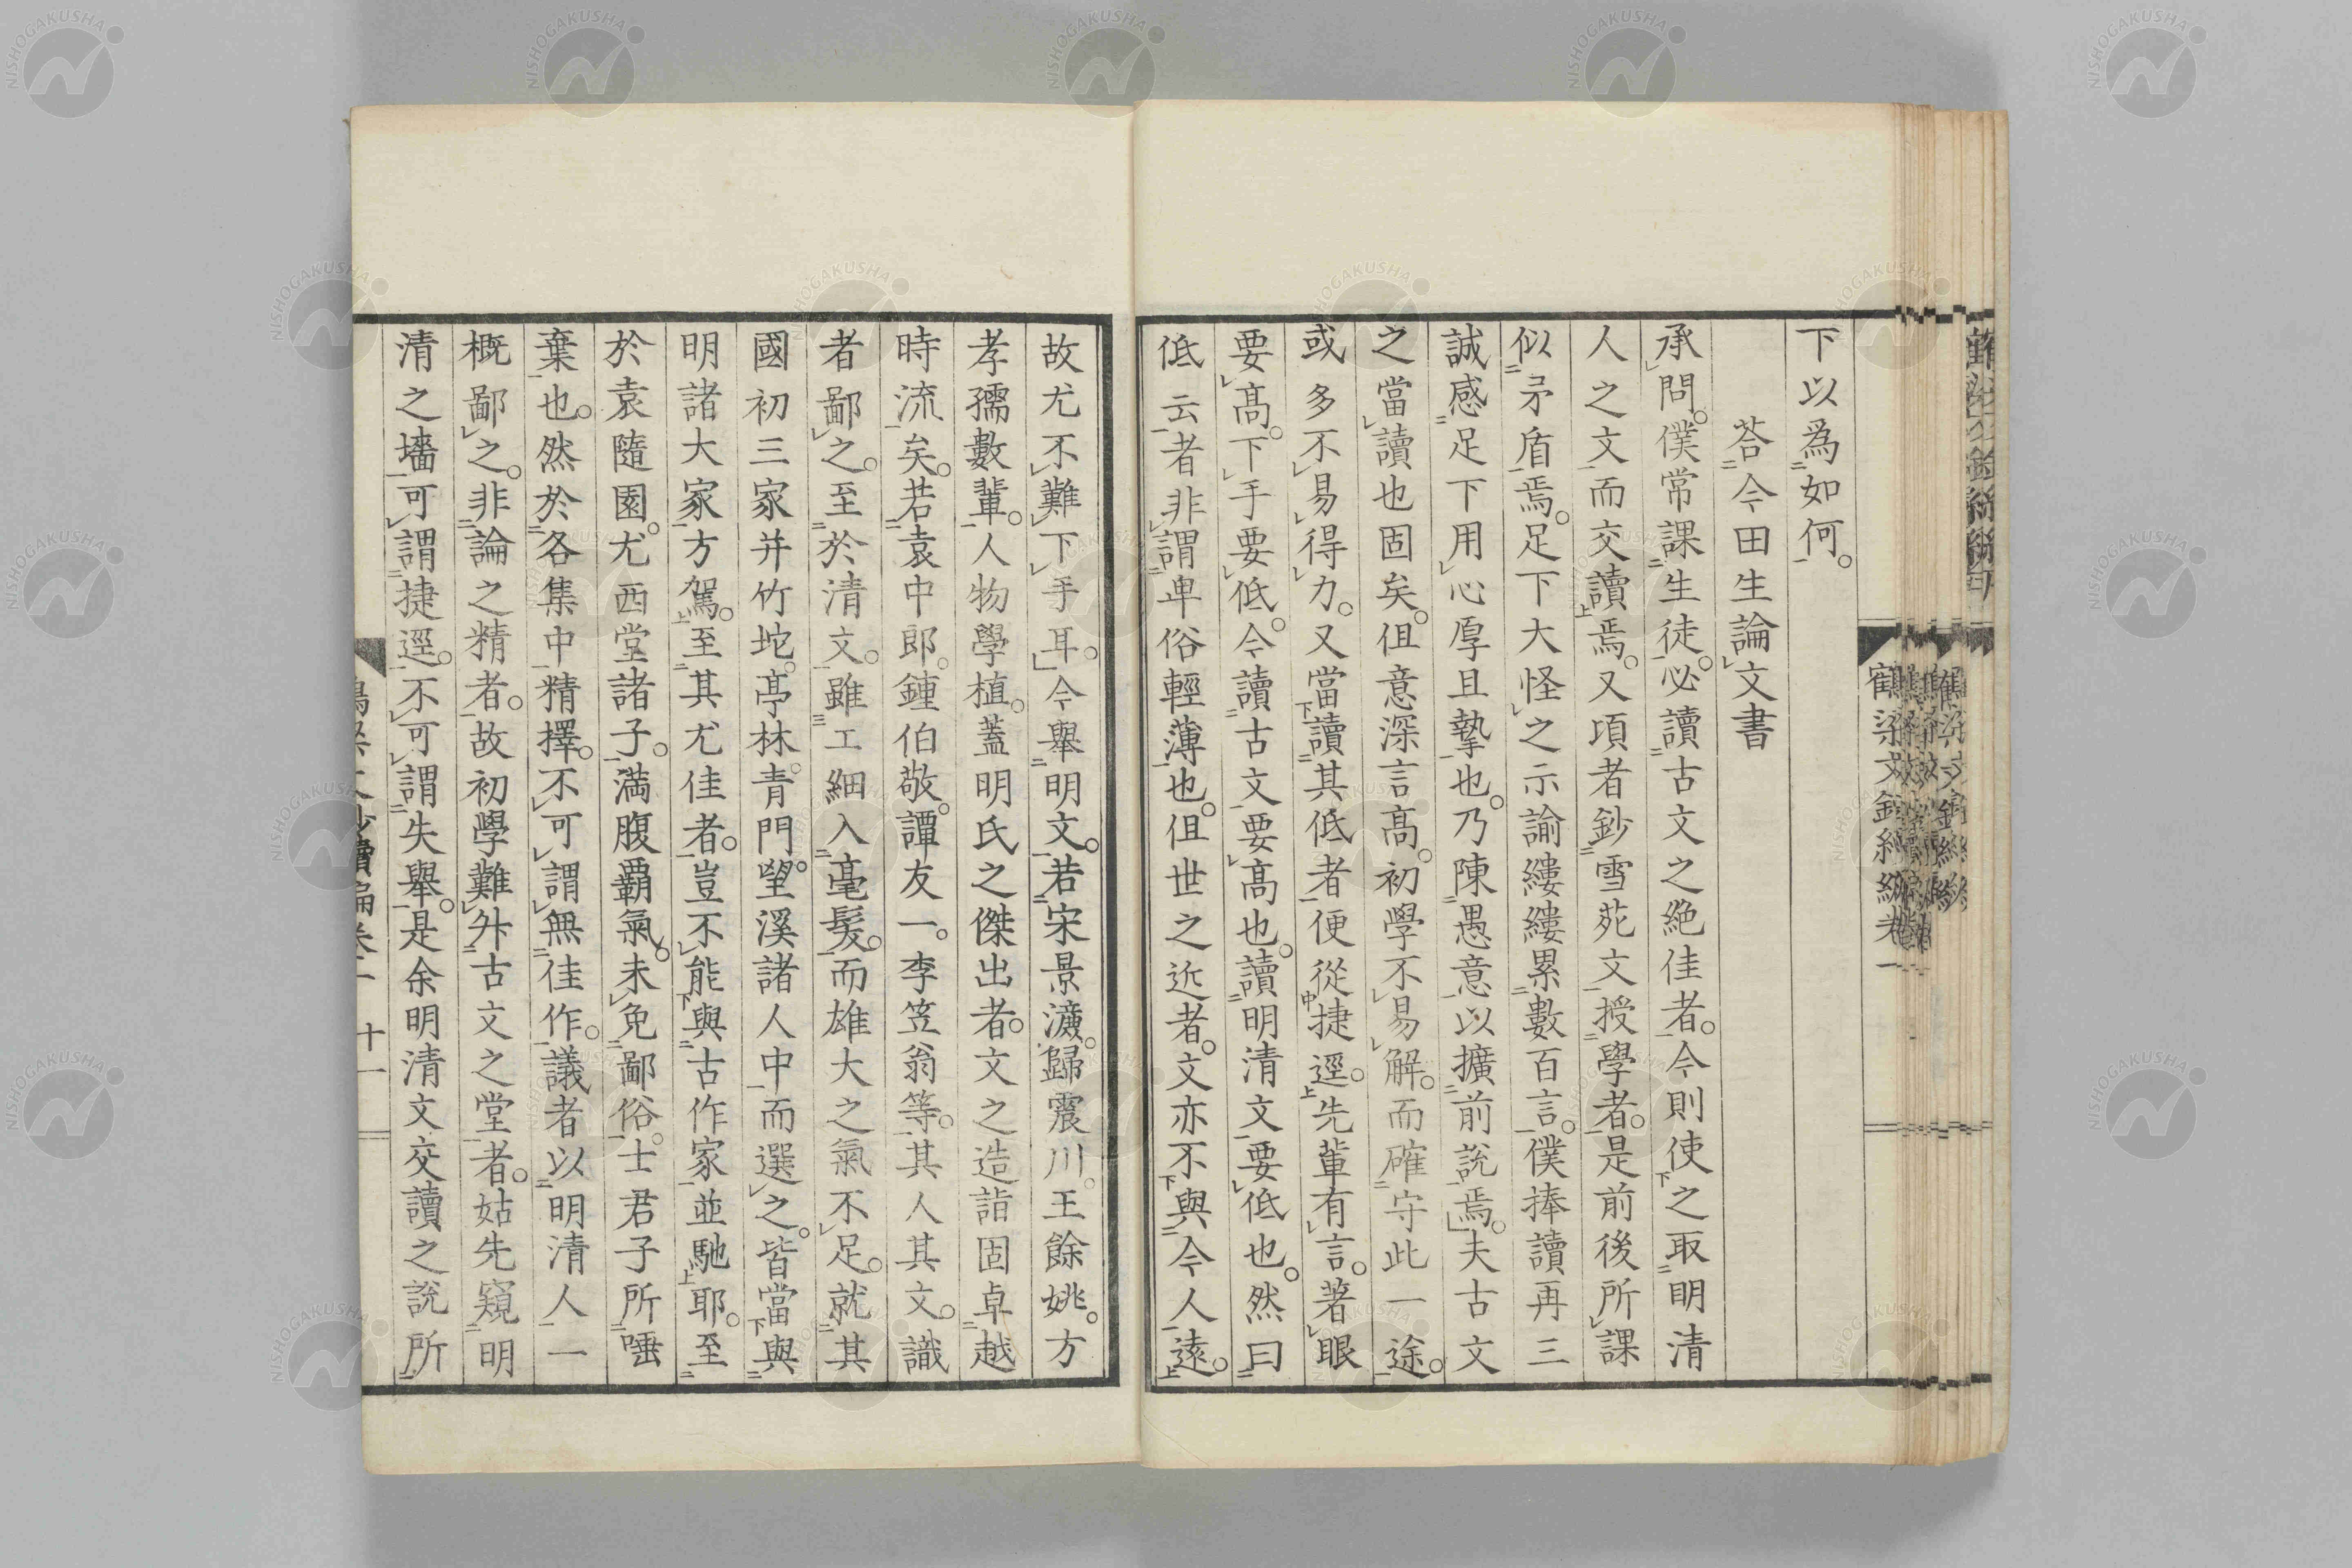 下以爲如何。
荅今田生論文書
承問。僕常課生徒。必讀古文之絶佳者。今則使之取明清
人之文而交讀焉。又項者鈔雪苑文授學者。是前後所課
似矛盾焉。足下大怪之示諭縷縷累數百言。僕捧讀再三
誠感足下用心厚且摯也。乃陳愚意以擴前説焉。夫古文
之當讀也固矣。伹意深言高。初學不易解。而確守此一途。
或多不易得力。又當讀其低者便從捷逕。先輩有言。著眼
要高。下手要低。今讀古文要高也。讀明清文要低也。然曰
低云者非謂卑俗輕薄也。伹世之近者。文亦不與今人遠。
故尤不難下手耳。今舉明文。若宋景濂。歸震川。王餘姚。方
孝孺數輩。人物學植。蓋明氏之傑出者。文之造詣固卓越
時流矣。若袁中郎。鍾伯敬。譚友一。李笠翁等。其人其文。識
者鄙之。至於清文。雖工細入毫髮。而雄大之氣不足。就其
國初三家并竹垞。亭林。青門。望溪諸人中而選之。皆當與
明諸大家方駕。至其尤佳者。豈不能與古作家並馳耶。至
於袁隨園。尤西堂諸子。満腹覇氣。未免鄙俗。士君子所唾
棄也。然於各集中精擇。不可謂無佳作。議者以明清人一
概鄙之。非論之精者。故初學難外古文之堂者。姑先窺明
清之墻可謂捷逕。不可謂失舉。是余明清文交讀之説所
十一
NISHOGAKUSHA